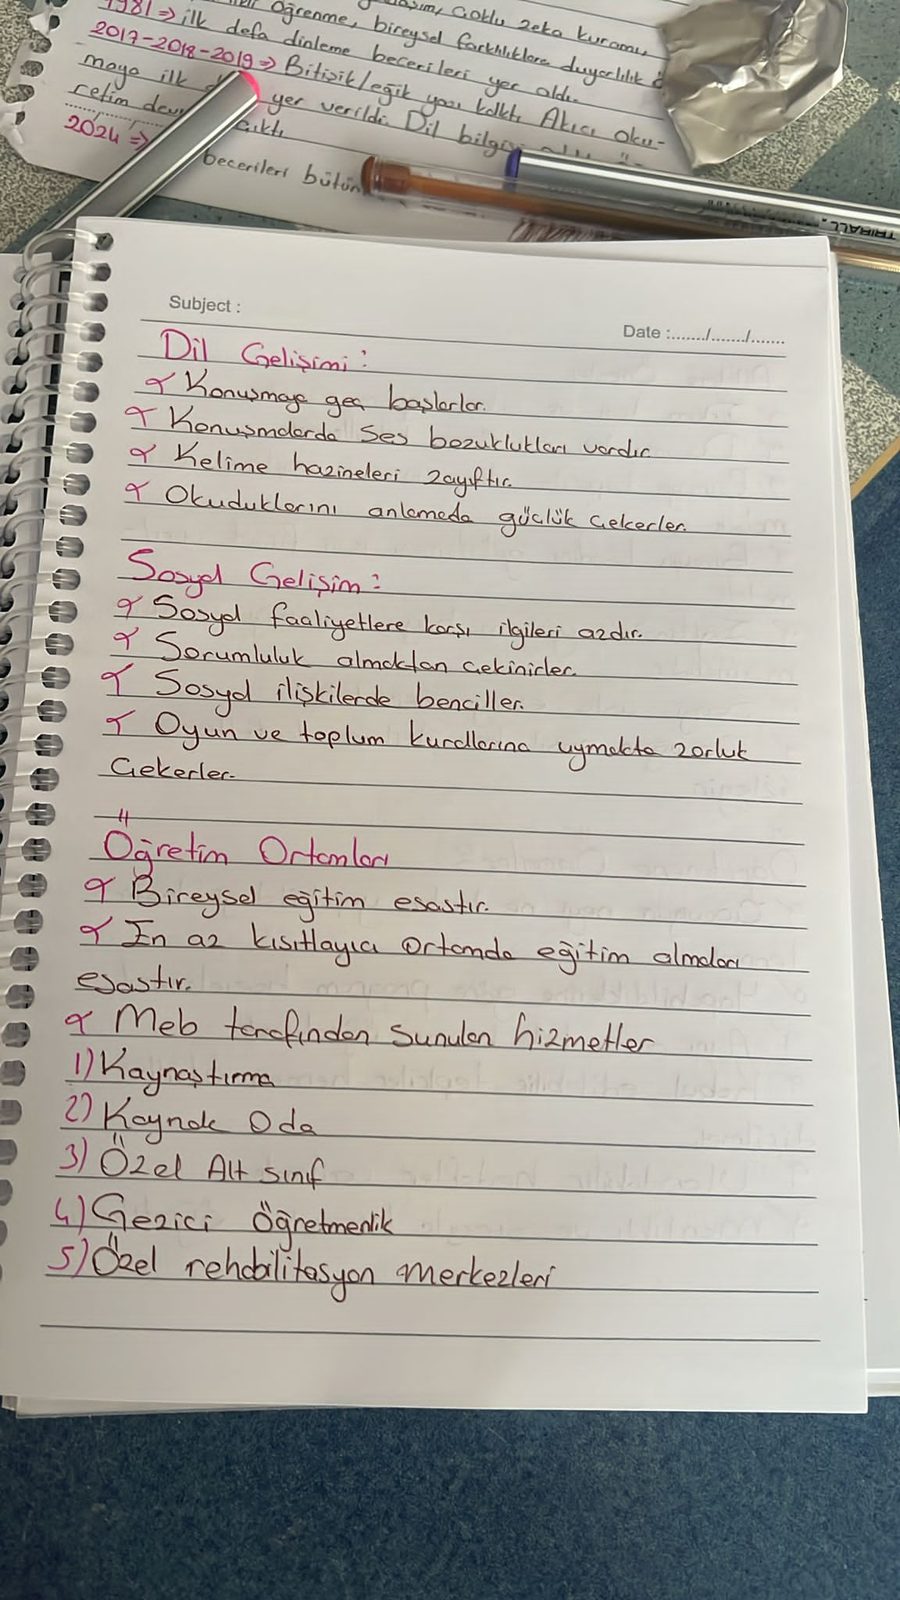 1981 => ilk defa dinleme becerileri yer aldı.
Öğrenme, bireysel farklılıklara duyarlılık
çoklu zeka kuramı,
2017-2018-2019 => Bitişik/eğik yazı kalktı. Akıcı oku-
maya ilk yer verildi. Dil bilgisi
retim
2024 =>
becerileri bütün
TRIBALL
Subject :
Date :......./......./.......
Dil Gelişimi :
Konuşmaya geç başlarlar.
Konuşmalarda Ses bozuklukları vardır.
Kelime hazineleri zayıftır.
Okuduklarını anlamada güçlük çekerler.
Sosyal Gelişim :
Sosyal faaliyetlere karşı ilgileri azdır.
Sorumluluk almaktan çekinirler.
Sosyal ilişkilerde benciller.
Oyun ve toplum kurallarına uymakta zorluk
çekerler.
Öğretim Ortamları
Bireysel eğitim esastır.
En az kısıtlayıcı ortamda eğitim almaları
esastır.
Meb tarafından sunulan hizmetler
1) Kaynaştırma
2) Kaynak Oda
3) Özel Alt sınıf
4) Gezici Öğretmenlik
5) Özel rehabilitasyon merkezleri